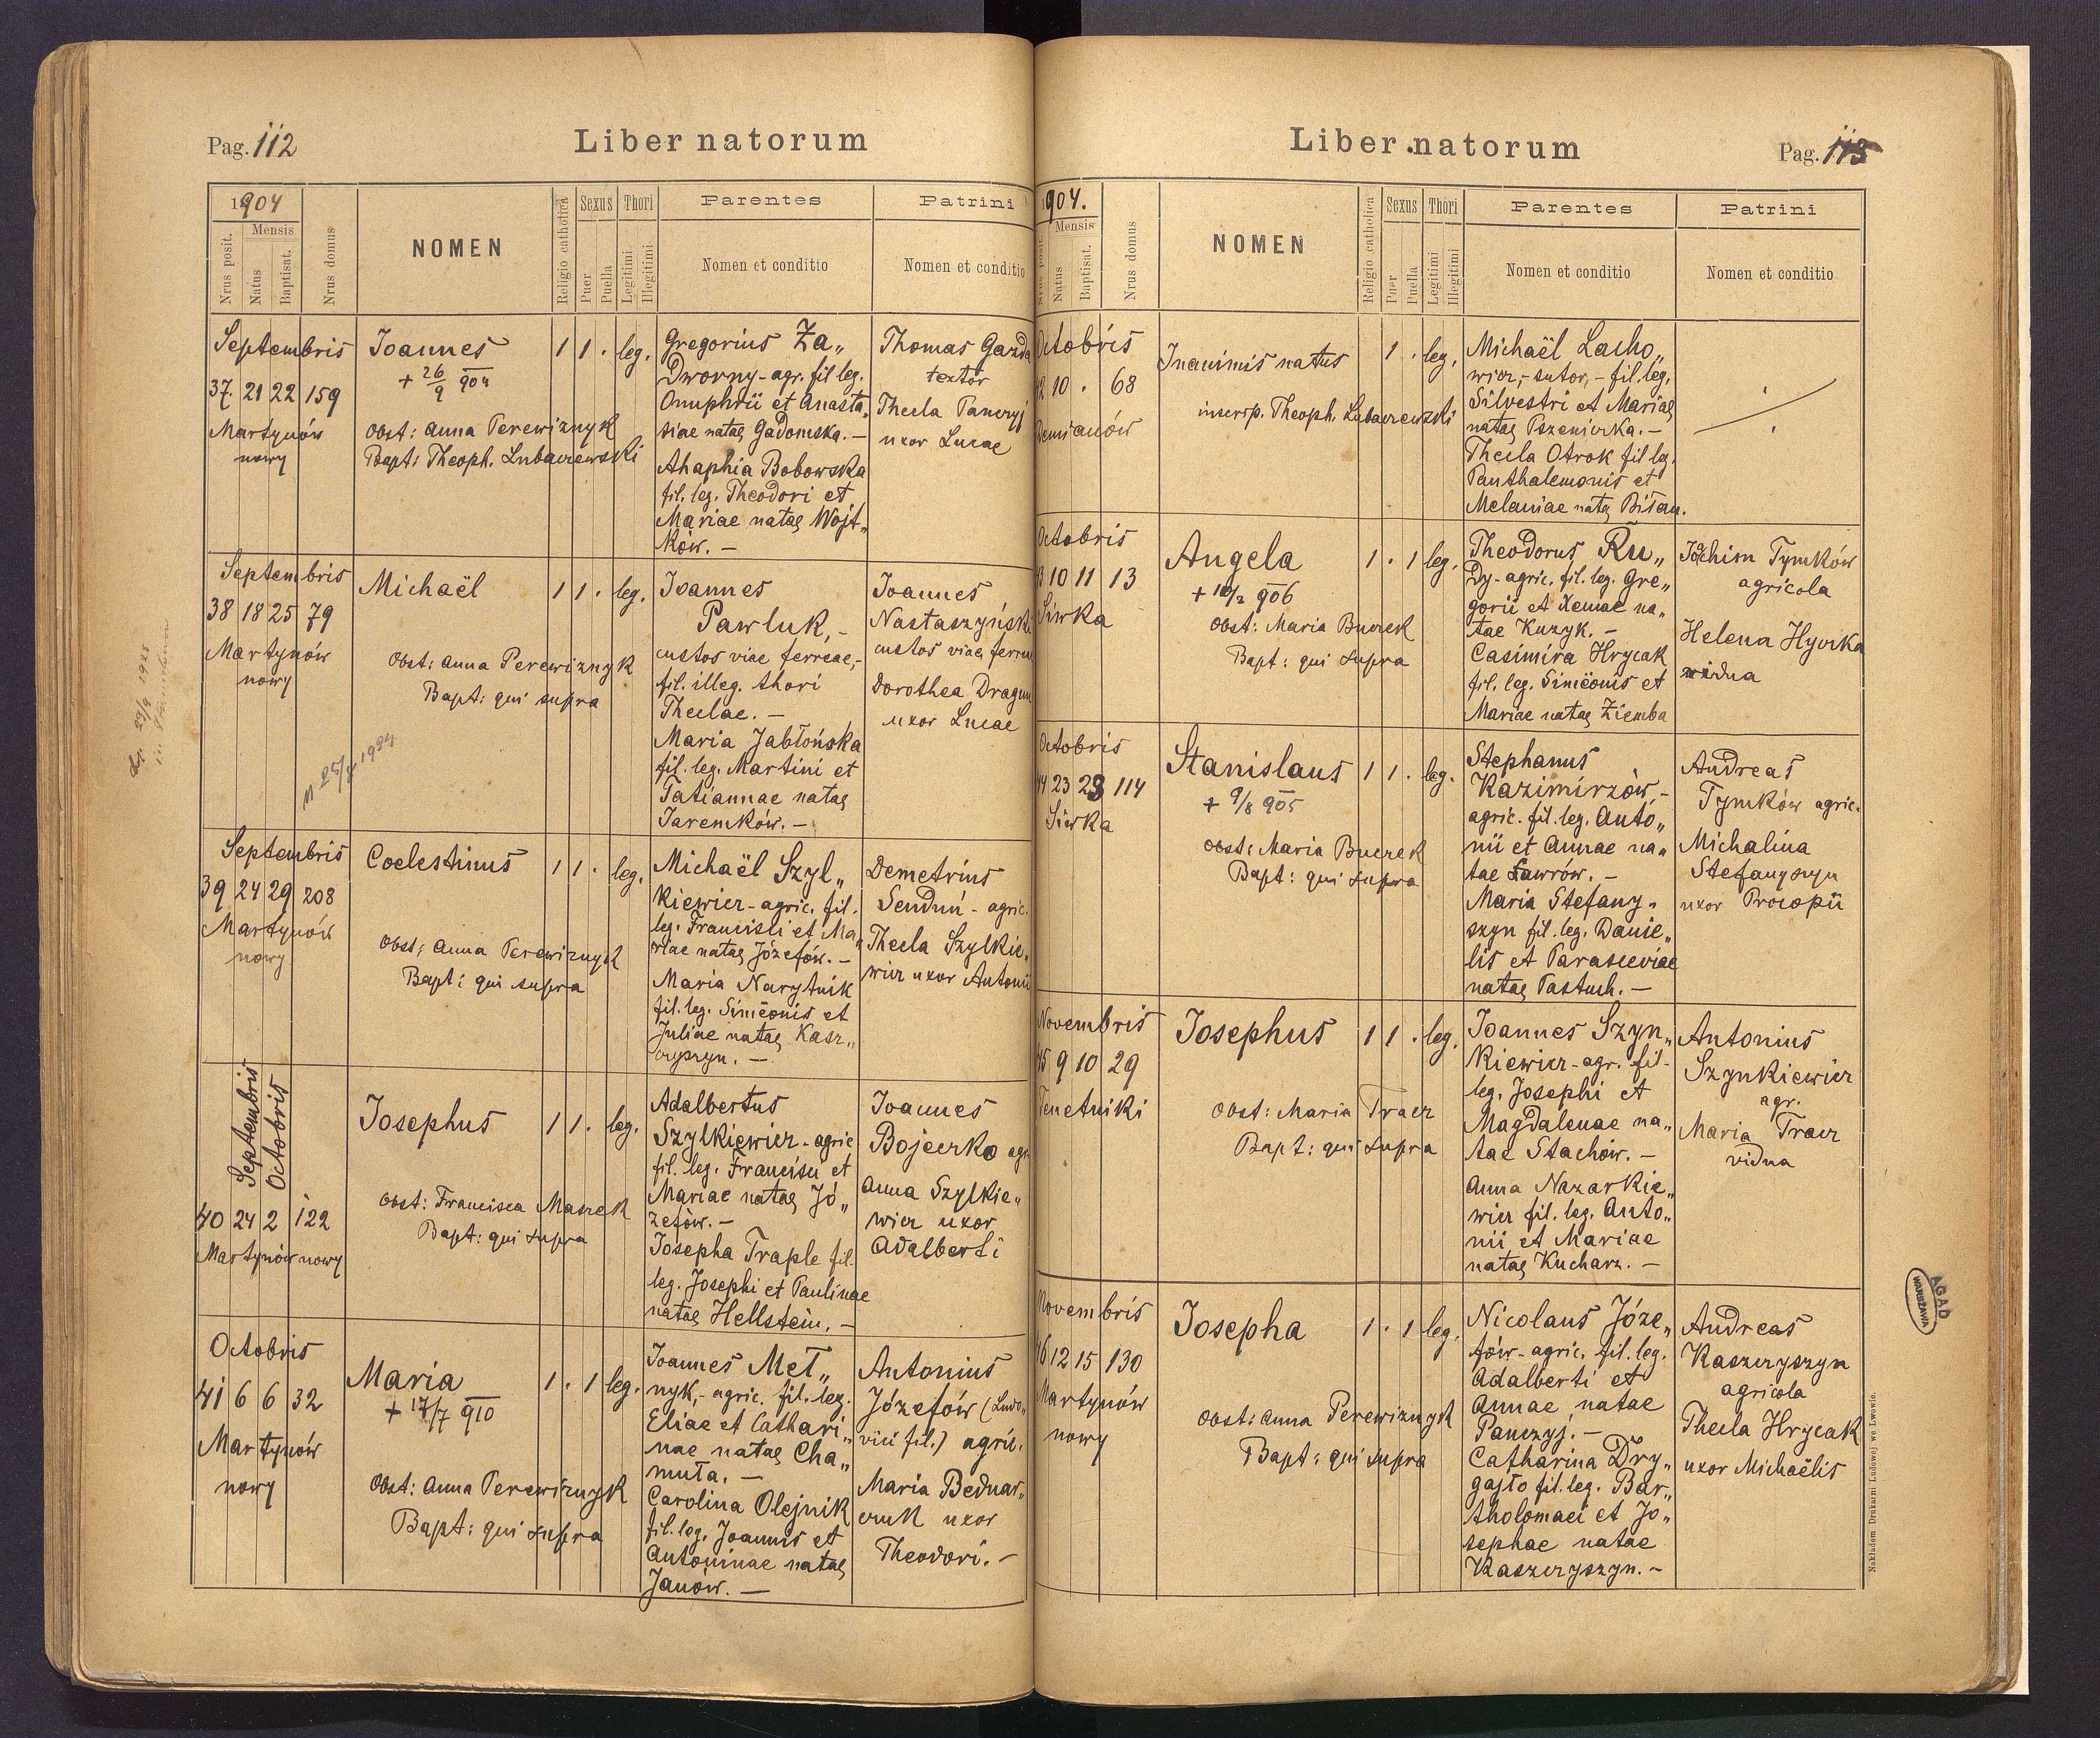 Pag. 112
Liber natorum
1904
Mensis
Nrus posit.
Natus
Baptisat.
Nrus domus
NOMEN
Religio catholica
Sexus
Puer
Puella
Thori
Legitimi
Illegitimi
Parentes
Nomen et conditio
Patrini
Nomen et conditio
Septembris
37. 21 22 159
Martynów
nowy
Joannes
+ 26/9 904
Obst: Anna Perewiznyk
Bapt: Theoph. Lubaczewski
1 1 . leg.
Gregorius Za„
Dworny - agr. fil leg.
Onuphrii et Anasta„
siae natae Gadomska. —
Ahaphia Bobowska
fil. leg. Theodori et
Mariae natae Wojt„
ków. —
Thomas Gazda
textor
Thecla Panczyj
uxor Lucae
Septembris
38 18 25 79
Martynów
nowy
Michaël
Obst: Anna Perewiznyk
Bapt: qui supra
1 1 . leg.
Joannes
Pawluk, -
custos viae ferreae, -
fil. illeg. thori
Theclae. —
Maria Jabłońska
fil. leg. Martini et
Tatiannae natae
Jaremków. —
Joannes
Nastaszyński
custos viae ferreae
Dorothea Dragun
uxor Lucae
Septembris
39 24 29 208
Martynów
nowy
Coelestinus
Obst: Anna Perewiznyk
Bapt: qui supra
1 1 . leg.
Michaël Szyl„
kiewicz - agric. fil.
leg. Francisci et Ma„
riae natae Józefów. —
Maria Narytnik
fil. leg. Simeonis et
Juliae natae Kasz„
czyszyn. —
Demetrius
Senduń - agric.
Thecla Szylkie„
wicz uxor Antonii
Septembris
Octobris
40 24 2 122
Martynów nowy
Josephus
Obst: Francisca Maszek
Bapt: qui supra
1 1 . leg.
Adalbertus
Szylkiewicz - agric
fil. leg. Francisci et
Mariae natae Jó„
zefów. —
Josepha Traple fil.
leg. Josephi et Paulinae
natae Hellstein. —
Joannes
Bojeczko agr
Anna Szylkie„
wicz uxor
Adalberti
Octobris
41 6 6 32
Martynów
nowy
Maria
+ 17/7 910
Obst: Anna Perewiznyk
Bapt: qui supra
1 . 1 leg.
Joannes Met„
nyk, - agric. fil. leg.
Eliae et Cathari„
nae natae Cha„
muta. —
Carolina Olejnik
fil. leg. Joannis et
Antoninae natae
Janów. —
Antonius
Józefów (Ludo„
vici fil.) agric.
Maria Bednar„
czuk uxor
Theodori. —
Liber natorum
Pag. 113
904.
Mensis
Nrus posit.
Natus
Baptisat.
Nrus domus
NOMEN
Religio catholica
Sexus
Puer
Puella
Thori
Legitimi
Illegitimi
Parentes
Nomen et conditio
Patrini
Nomen et conditio
Octobris
42 10 . 68
Demianów
Inanimis natus
inscrip. Theoph. Lubaczewski
1 . leg.
Michaël Lacho„
wicz, - sutor, - fil. leg.
Silvestri et Mariae
natae Pszeniczka. —
Thecla Otrok fil leg.
Panthalemonis et
Melaniae natae Bitan.
Octobris
43 10 11 13
Siwka
Angela
906
Obst: Maria Buczek
Bapt: qui supra
1 . 1 leg.
Theodorus Ru„
Dy - agric. fil. leg. Gre„
gorii et Xeniae na„
tae Kuzyk. —
Casimira Hrycak
fil. leg. Simeonis et
Mariae natae Ziemba
Joachim Tymków
agricola
Helena Hyczka
vidua
Octobris
44 23 23 114
Siwka
Stanislaus
+ 9/8 905
Obst: Maria Buczek
Bapt: qui supra
1 1 . leg.
Stephanus
Kazimirzów, -
agric. fil. leg. Anto„
nii et Annae na„
tae Ławrów. —
Maria Stefany„
szyn fil. leg. Danie„
lis et Parasceviae
natae Pastuch. —
Andreas
Tymków agric.
Michalina
Stefanyszyn
uxor Procopii
Novembris
45 9 10 29
Tenetniki
Josephus
Obst: Maria Tracz
Bapt: qui supra
1 1 . leg.
Joannes Szyn„
kiewicz - agr. fil.
leg. Josephi et
Magdalenae na„
tae Stachów. —
Anna Nazarkie„
wicz fil. leg. Anto„
nii et Mariae
natae Kucharz. —
Antonius
Szynkiewicz
agr.
Maria Tracz
vidua
Novembris
46 12 15 130
Martynów
nowy
Josepha
Obst: Anna Perewiznyk
Bapt: qui supra
1 . 1 leg.
Nicolaus Józe„
fów - agric. fil. leg.
Adalberti et
Annae natae
Panczyj. —
Catharina Dry„
gajło fil. leg. Bar„
tholomaei et Jo„
sephae natae
Kaszczyszyn. —
Andreas
Kaszczyszyn
agricola
Thecla Hrycak
uxor Michaëlis
Nakładem Drukarni Ludowej we Lwowie.
AGAD
WARSZAWA